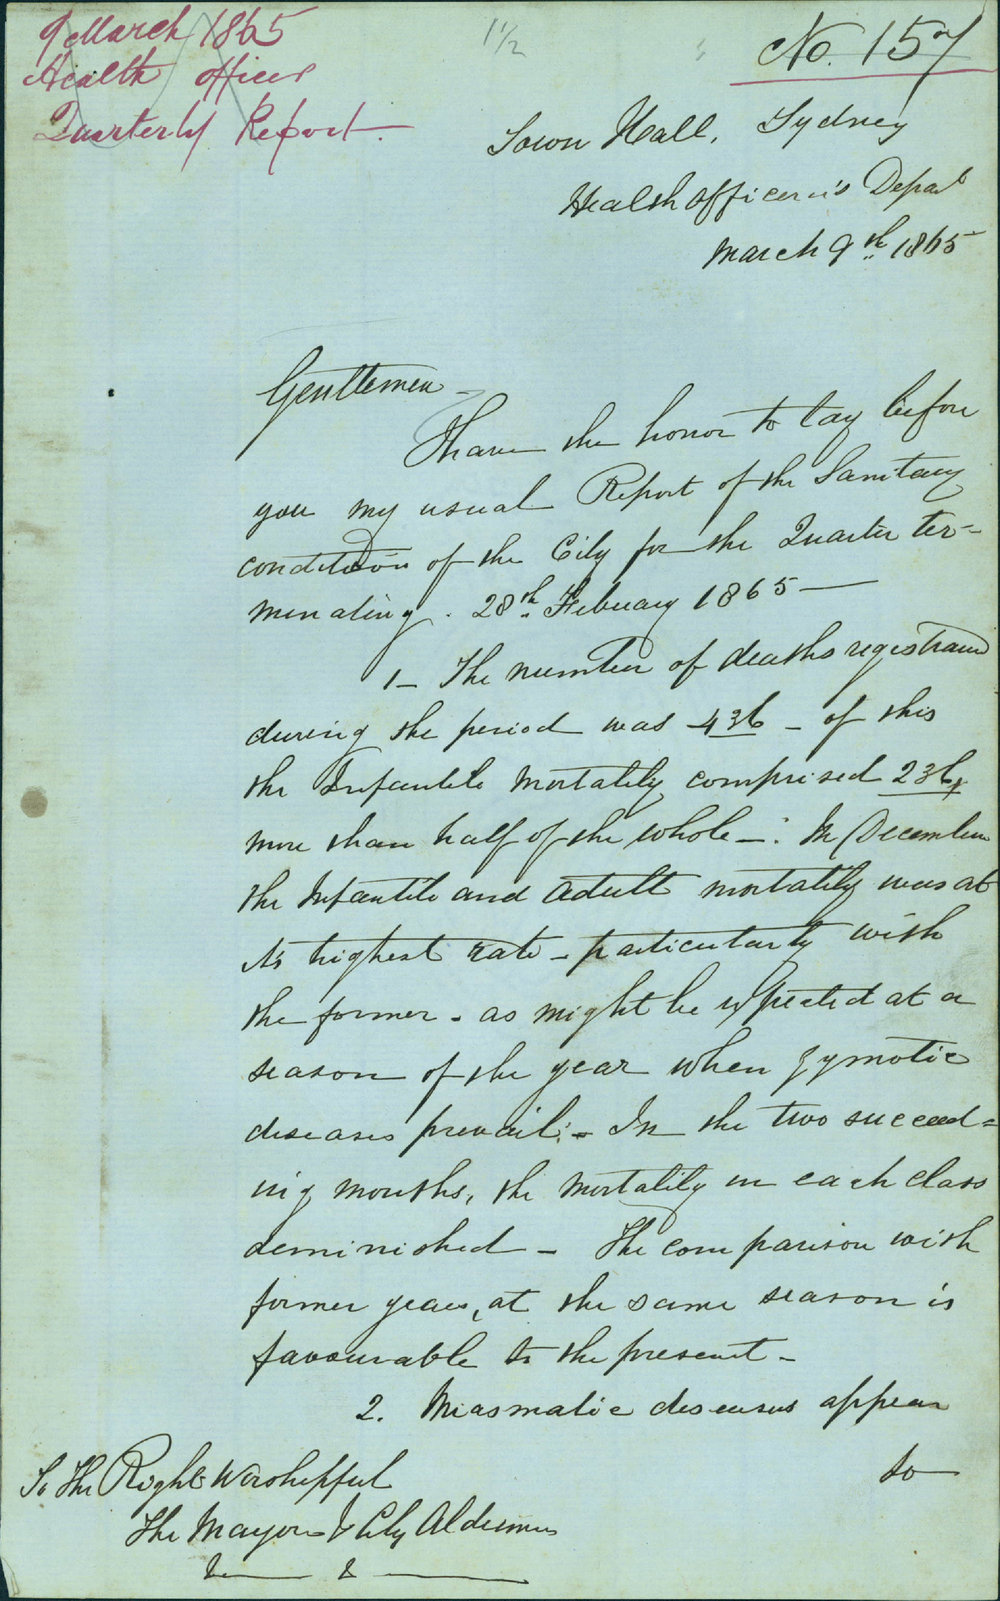 9 March 1865
Health Officer
Quarterly Report.
11/2
No. 157
Town Hall, Sydney
Health Officer's Depart
March 9th 1865
Gentlemen
I have the honor to lay before
you my usual Report of the Sanitary
condition of the City for the Quarter ter=
minating. 28th February 1865 —
1 – The number of deaths registered
during the period was 436 – of this
the Infantile mortality comprised 236,
more than half of the whole –. In December
the Infantile and adult mortality was at
its highest rate – particularly with
the former – as might be expected at a
season of the year when zymotic
diseases prevail: – In the two succeed=
ing months, the mortality in each class
deminished – The comparison with
former years, at the same season is
favourable to the present –
2. Miasmatic diseases appear
to
To The Right Worshipful
The Mayor & City Aldermen
& — & —